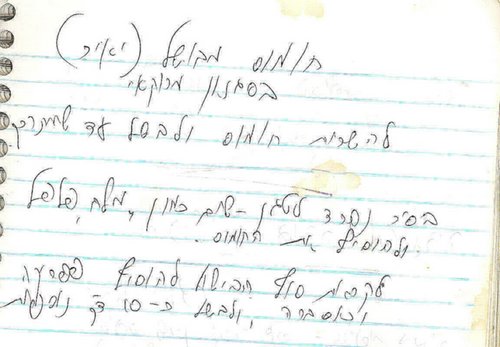 חומוס מבושל (יאיר)
בסגנון מרוקאי
להשרות חומוס ולבשל עד שמתרכך.
בסיר נפרד לטגן - שום כמון, מלח, פלפל
ולהוסיף את החומוס.
לקראת סוף הבישול להוסיף פפריקה
וכוסברה, ולבשל כ-10 דק' נוספות